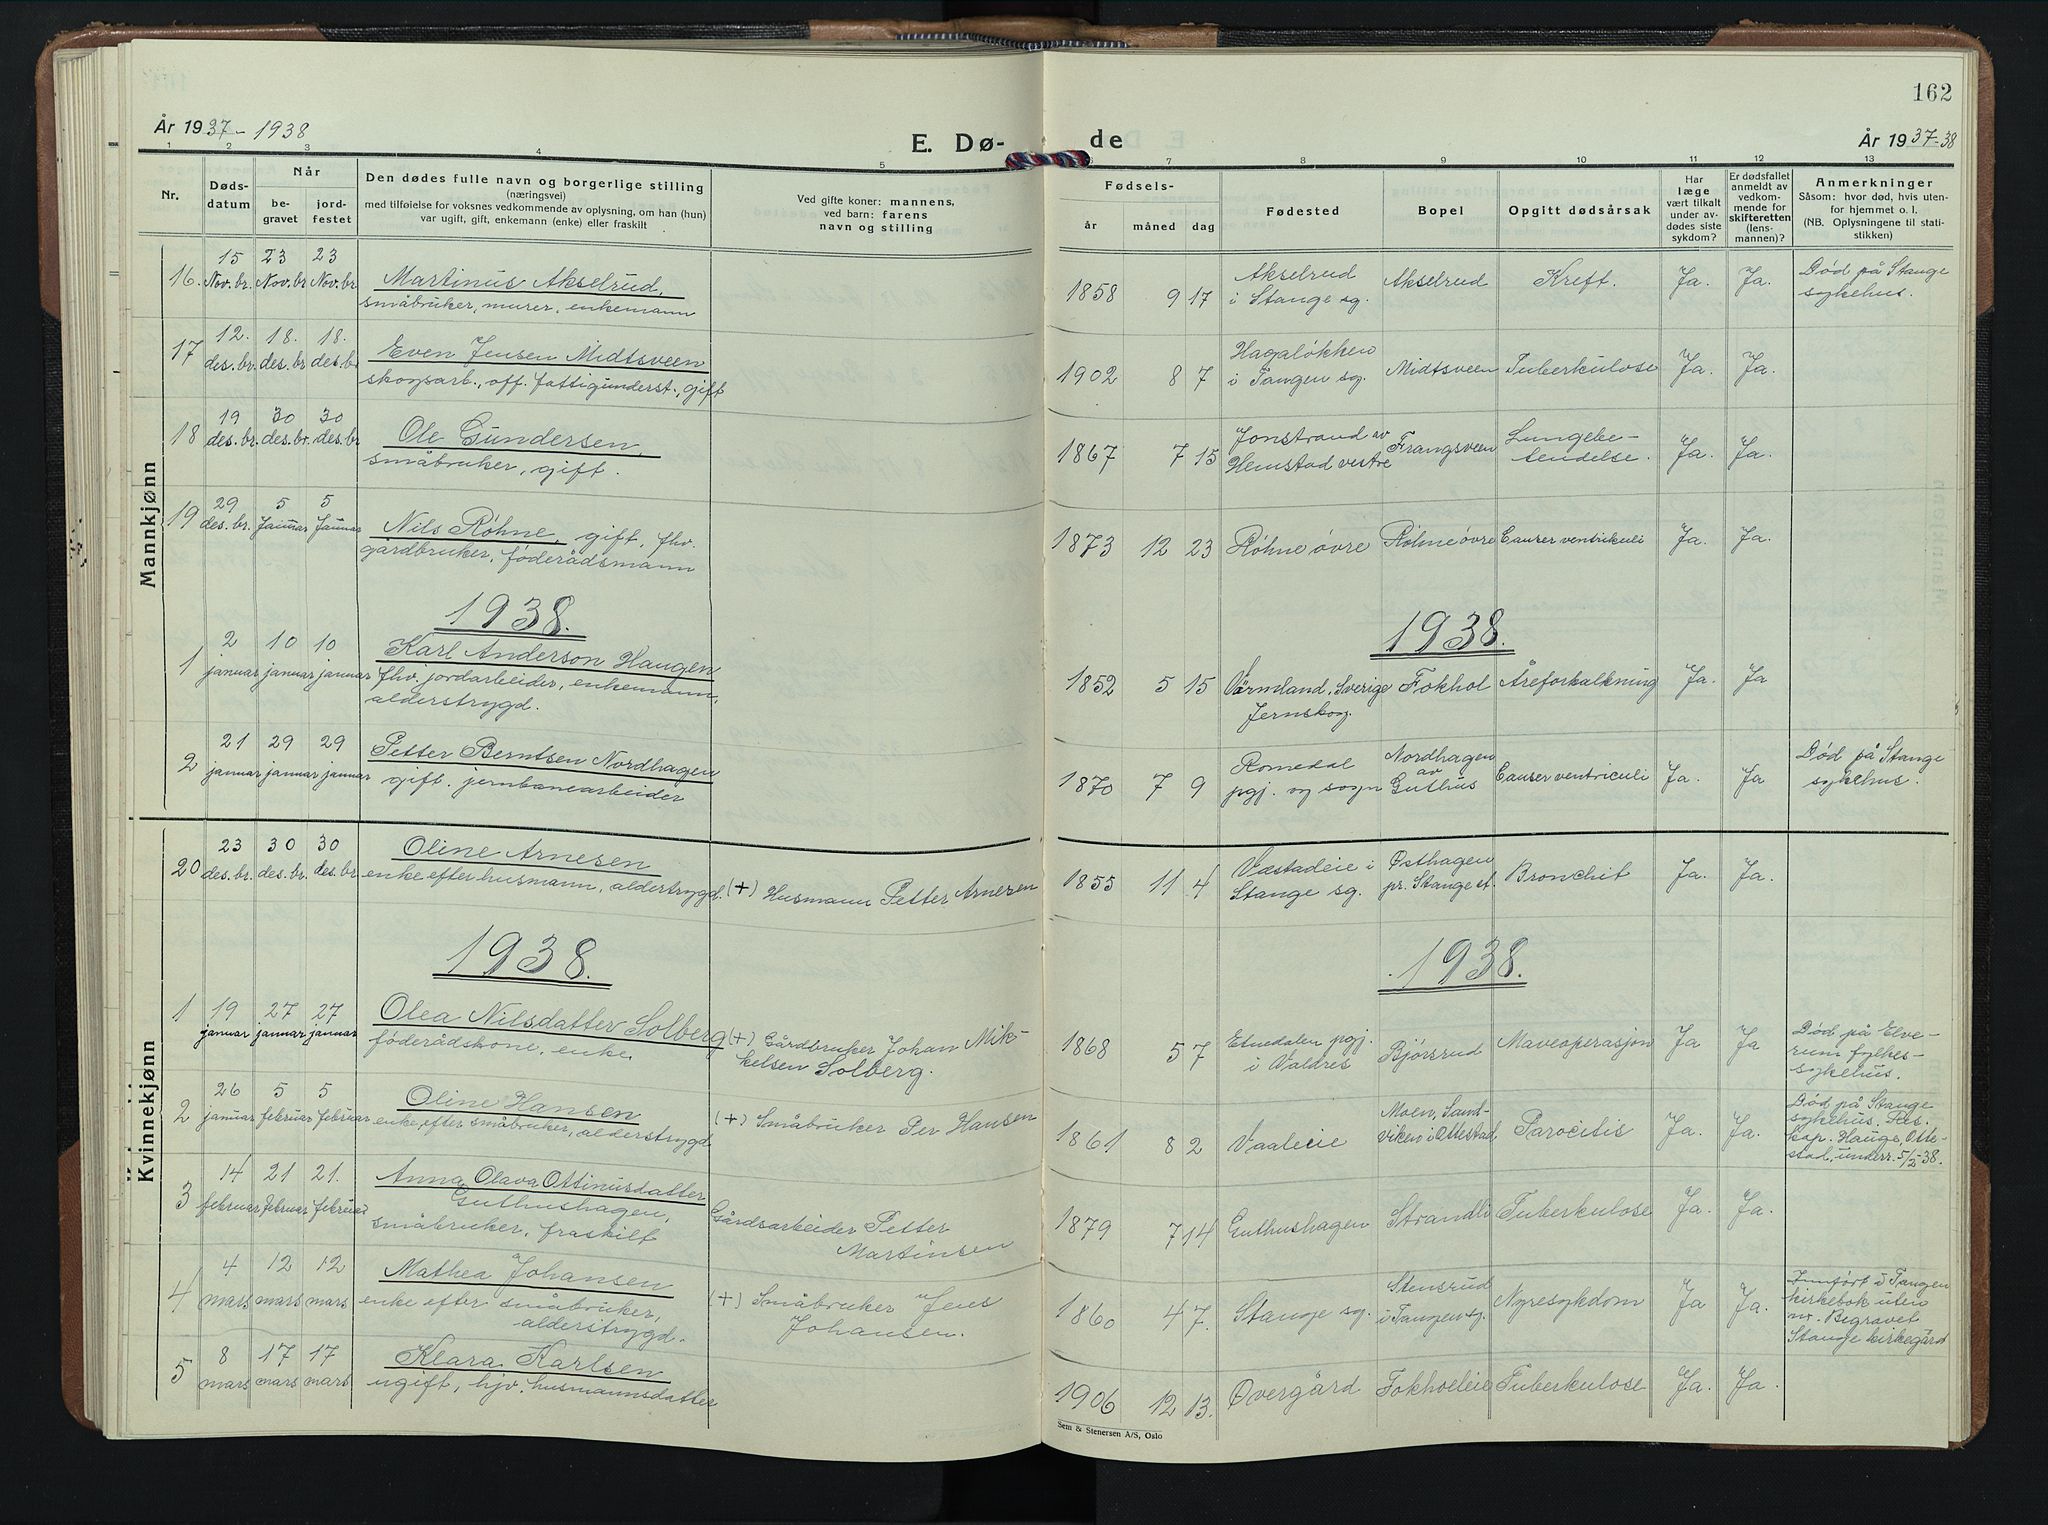 162
År 1937-1938
E. Dø-
de
År 1937-38
1 2 3 4 5
6 7 8 9 10 11 12 13
Nr.
Døds-
datum
Når
be-
gravet
jord-
festet
Den dødes fulle navn og borgerlige stilling
(næringsvei)
med tilføielse for voksnes vedkommende av oplysning, om han (hun)
var ugift, gift, enkemann (enke) eller fraskilt
Ved gifte koner: mannens,
ved barn: farens
navn og stilling
Fødsels-
år måned dag
Fødested
Bopel
Opgitt dødsårsak
Har
læge
vært tilkalt
under av-
dødes siste
sykdom?
Er dødsfallet
anmeldt av
vedkom-
mende for
skifteretten
(lens-
mannen)?
Anmerkninger
Såsom: hvor død, hvis uten-
for hjemmet o. l.
(NB. Oplysningene til stati-
stikken)
Mannkjønn
15 23 23
16. Nov.br. Nov.br Nov.br Martinus Akselrud,
småbruker, murer, enkemann
1858 9 17 Akselrud
i Stange sg. Akselrud Kreft. Ja. Ja. Død på Stange
sykehus.
12. 18. 18.
17 des.br. des.br des.br Even Jensen Midtsveen
skogsarb., off. fattigunderst., gift
1902 8 7 Hagaløkken
i Tangen sg. Midtsveen Tuberkulose Ja. Ja.
19 30 30
18 des.br. des.br. des.br Ole Gundersen,
småbruker, gift.
1867 7 15 Jonstrand av
Hemstad vestre Frangsveen Lungebe-
tendelse. Ja. Ja.
29 5 5
19 des.br. Januar Januar Nils Røhne, gift, fhv.
gårdbruker, føderådsmann
1873 12 23 Røhne øvre Røhne øvre Cancer ventrikuli Ja. Ja.
1938.
1938.
2 10 10
1 januar januar januar Karl Anderson Haugen
fhv. jordarbeider, enkemann,
alderstrygd.
1852 5 15 Värmland, Sverige
Jernskog. Fokhol Åreforkalkning Ja. Ja
21 29 29
2 januar januar januar Petter Berntsen Nordhagen
gift. jernbanearbeider
1870 7 9 Romedal
pgj. og sogn Nordhagen
av
Guthus Cancer ventriculi Ja. Ja Død på Stange
sykehus.
Kvinnekjønn
23 30 30
20 des.br. des.br. des.br Oline Arnesen
enke efter husmann, alderstrygd. (+) Husmann Petter Arnesen
1855 11 4 Vastadeie i
Stange sg. Østhagen
pr. Stange st. Bronchit Ja. Ja.
1938.
1938.
1 19 27 27
januar januar januar Olea Nilsdatter Solberg
føderådskone, enke. (+) Gårdbruker Johan Mik-
kelsen Solberg.
1868 5 7 Etnedalen pgj.
i Valdres Bjørsrud Maveoperasjon Ja Ja Død på Elve-
rum fylkes-
sykehus.
26 5 5
2 januar februar februar Oline Hansen
enke, efter småbruker, alderstrygd (+) Småbruker Per Hansen
1861 8 2 Vaaleeie Moen, Sand-
viken i Ottestad, Ja. Ja. Død på Stange
sykehus. Res.
kap. Hauge, Otte-
stad, underr. 5/2-38.
14 21 21.
3 februar februar februar Anna Olava Ottinusdatter
Guthushagen,
småbruker, fraskilt Gårdsarbeider Petter
Martinsen
1879 7 14 Guthushagen Strandli Tuberkulose Ja. Ja.
4 12 12
4 mars mars mars Mathea Johansen
enke efter småbruker,
alderstrygd. (+) Småbruker Jens
Johansen.
1860 4 7. Stange sg. Stensrud
i Tangen sg. Nyresykdom Ja Ja. Innført i Tangen
kirkebok uten
nr. Begravet
Stange kirkegård
8 17 17
5 mars mars mars Klara Karlsen
ugift, hjv. husmannsdatter
1906 12 13. Øvergård Fokholeie Tuberkulose Ja. Ja.
Sem & Stenersen A/S, Oslo